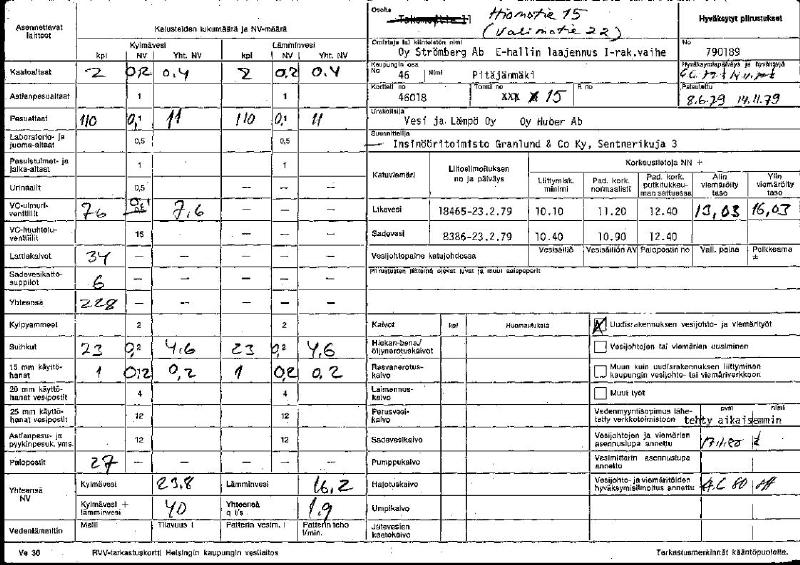 Asennettavat laitteet
Kalusteiden lukumäärä ja NV-määrä
Kylmävesi Lämminvesi
kpl NV Yht. NV kpl NV Yht. NV
Kaatoaltaat 2 0,2 0,4 2 0,2 0,4
Astianpesualtaat 1 — — 1 —
Pesualtaat 110 0,1 11 110 0,1 11
Laboratorio- ja juoma-altaat 0,5 0,5
Pesuistuimet- ja jalka-altaat 1 1
Urinaalit 0,5 — — — —
VC-uimuriventtiilit 76 0,1 7,6 — — —
VC-huuhteluventtiilit 15 — — —
Lattiakaivot 34 — — — — —
Sadevesikattosuppilot 6 — — — — —
Yhteensä 228 — — — — —
Kylpyammeet 2 2
Suihkut 23 0,2 4,6 23 0,2 4,6
15 mm käyttöhanat 1 0,2 0,2 1 0,2 0,2
20 mm käyttöhanat vesipostit 4 4
25 mm käyttöhanat vesipostit 12 12
Astianpesu- ja pyykinpesuk. yms. 12 12
Palopostit 27 — — — — —
Yhteensä NV
Kylmävesi 23,8 Lämminvesi 16,2
Kylmävesi + lämminvesi 40 Yhteensä q l/s 1,9
Vedenlämmitin Malli Tilavuus l Patterin vesim. l Patterin teho l/min.
Ve 30 RVV-tarkastuskortti Helsingin kaupungin vesilaitos
Osoite Hiomotie 15
(Valimotie 22)
Hyväksytyt piirustukset
Omistaja tai kiinteistön nimi
Oy Strömberg Ab E-hallin laajennus I-rak.vaihe
No 790189
Kaupungin osa
No 46 Nimi Pitäjänmäki
Hyväksymispäiväys ja hyväksyjä
Kortteli no 46018 Tontti no XXX 15 R no
Palautettu 8.6.79 14.11.79
Urakoitsija
Vesi ja Lämpö Oy Oy Huber Ab
Suunnittelija
Insinööritoimisto Granlund & Co Ky, Sentnerikuja 3
Katuviemäri
Liitosilmoituksen no ja päiväys
Korkeustietoja NN +
Liittymisk. minimi
Pad. kork. normaalisti
Pad. kork. putkitukkeuman sattuessa
Alin viemäröity taso
Ylin viemäröity taso
Likavesi 18465-23.2.79 10.10 11.20 12.40 13,03 16,03
Sadevesi 8386-23.2.79 10.40 10.90 12.40
Vesijohtopaine katujohdossa
Vesisäiliö Vesisäiliön AV Palopostin no Vall. paine Poikkeama ±
Kaivot kpl Huomautuksia
Hiekan-bens./öljynerotuskaivot
Rasvanerotuskaivo
Laimennuskaivo
Perusvesikaivo
Sadevesikaivo
Pumppukaivo
Hajotuskaivo
Umpikaivo
Jätevesien kaatokaivo
Uudisrakennuksen vesijohto- ja viemärityöt
Vesijohtojen tai viemärien uusiminen
Muun kuin uudisrakennuksen liittyminen kaupungin vesijohto- tai viemäriverkkoon
Muut työt
pvm nimi
Vedenmyyntisopimus lähetetty verkkotoimistoon tehty aikaisemmin
Vesijohtojen ja viemärien asennuslupa annettu
Vesimittarin asennuslupa annettu
Vesijohto- ja viemäritöiden hyväksymisilmoitus annettu
Tarkastusmerkinnät kääntöpuolelle.